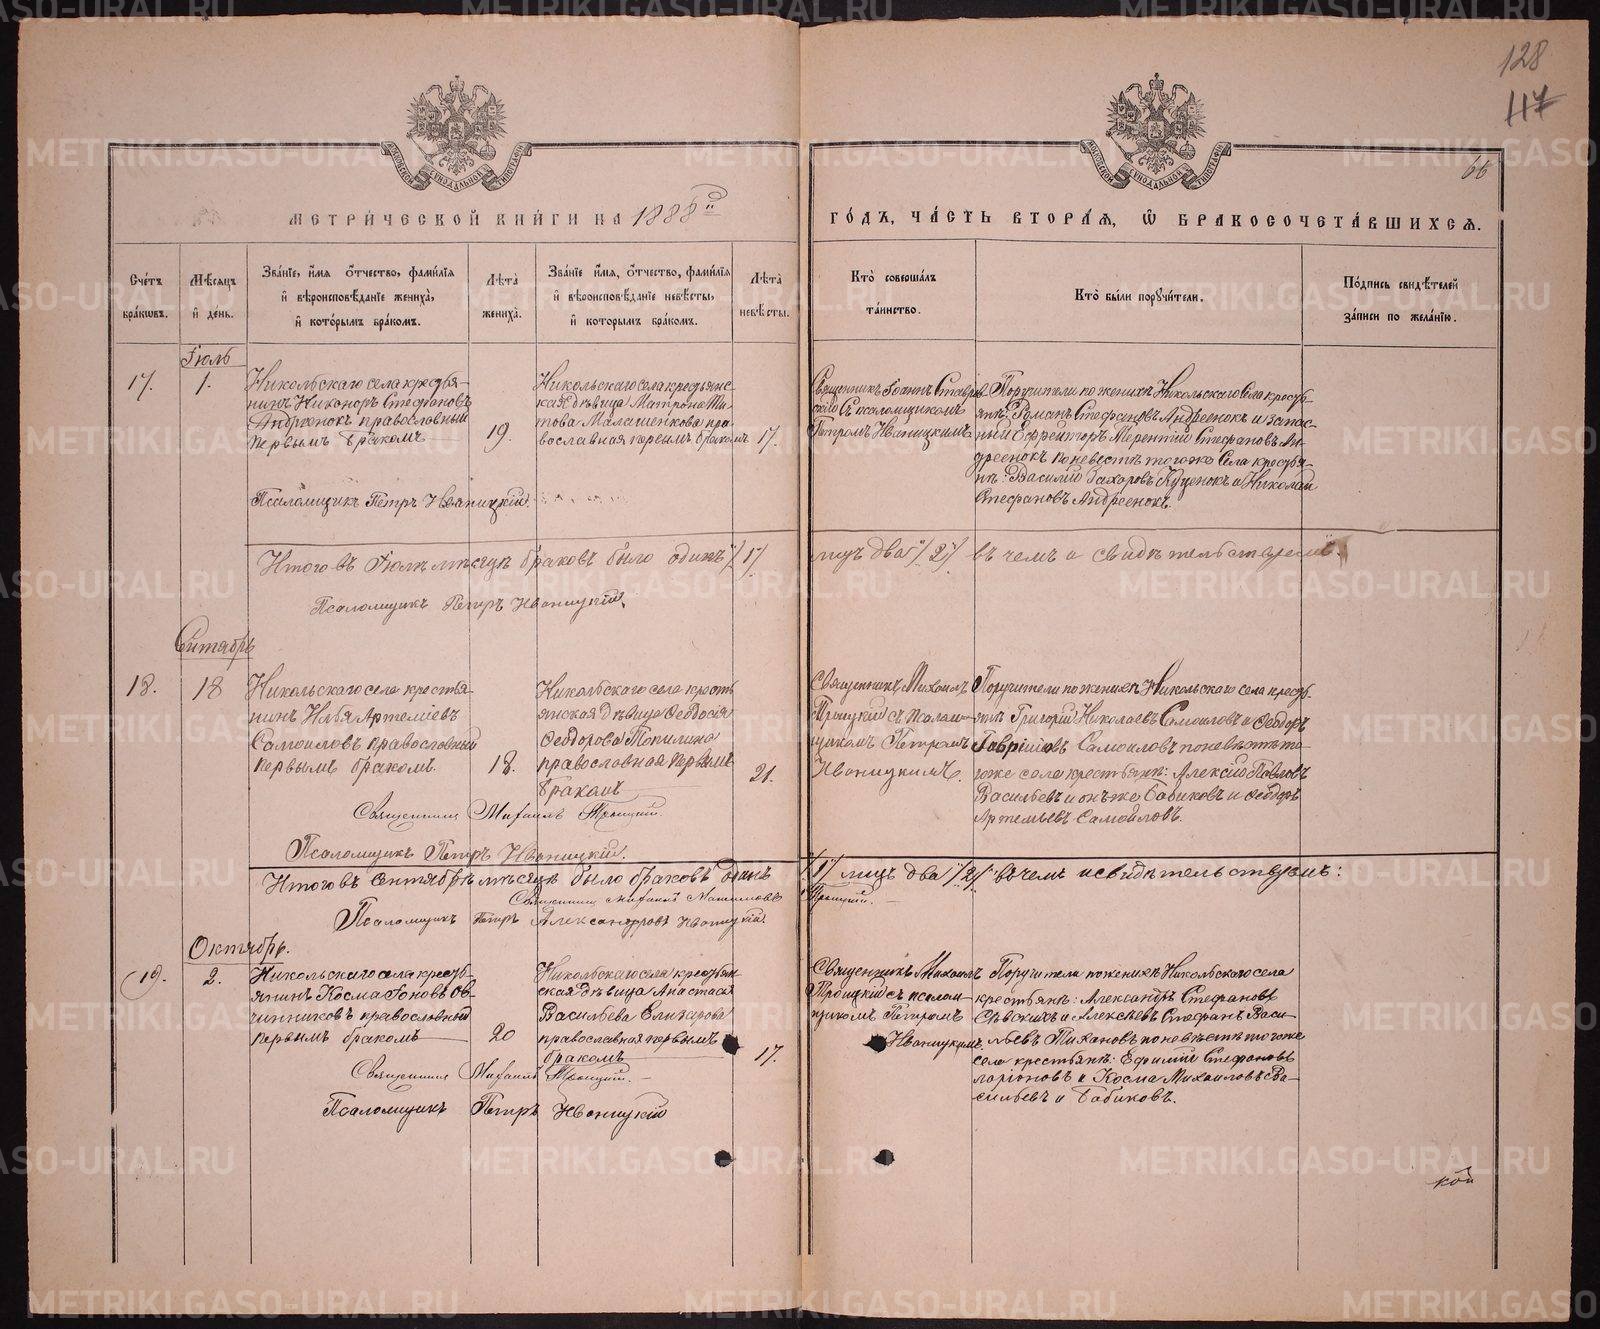 128
117
66
МОСКОВСКОЙ СѴНОДАЛЬНОЙ ТИПОГРАФІИ
МОСКОВСКОЙ СѴНОДАЛЬНОЙ ТИПОГРАФІИ
МЕТРИ́ЧЕСКОЙ КНИ́ГИ НА 1888й
ГО́ДЪ, ЧА́СТЬ ВТОРА́Я, Ѽ БРАКОСОЧЕТА́ВШИХСЯ.
Сче́тъ бра́ковъ.
Мѣ́сяцъ и́ де́нь.
Зва́нїе, и́мя о́тчество, фами́лїя и́ вѣроисповѣ́данїе жениха̀, и́ кото́рымъ бра́комъ.
Лѣ́та жениха̀.
Зва́нїе и́мя, о́тчество, фами́лїя и́ вѣроисповѣ́данїе невѣ́сты, и́ которымъ бра́комъ.
Лѣ́та невѣ́сты.
Кто̀ соверша́лъ та́инство.
Кто̀ бы́ли поручи́тели.
По́дпись свидѣ́телей за́писи по жела́нїю.
Іюль
17. 1.
Никольскаго села крестья-
нинъ Никаноръ Стефановъ
Андреенокъ православный
первымъ бракомъ
19.
Никольскаго села крестьянс-
кая дѣвица Матрона Ти-
това Малашенкова пра-
вославная первымъ бракомъ
17.
Священникъ Іоаннъ Ставров-
скій съ псаломщикомъ
Петромъ Иваницкимъ
Поручители по женихѣ Никольскаго села кресть-
янѣ: Романъ Стефановъ Андреенокъ и запас-
ный Ефрейторъ Терентій Стефановъ Ан-
дреенокъ по невестѣ тогоже села крестья-
нѣ: Василій Захаровъ Куценокъ и Николай
Стефановъ Андреенокъ.
Псаломщикъ Петръ Иваницкій.
Итого въ Іюлѣ мѣсяцѣ браковъ было одинъ /1/
лицъ два /2/ въ чемъ и свидѣтельствуемъ.
Псаломщикъ Петръ Иваницкій.
Сентябрь
18. 18
Никольскаго села крестья-
нинъ Илья Артеміевъ
Самойловъ православный
первымъ бракомъ.
18.
Никольскаго села кресть
янская дѣвица Феодосія
Феодорова Топилина
православная первымъ
бракомъ
21.
Священникъ Михаилъ
Троицкій съ псалом-
щикомъ Петромъ
Иваницкимъ.
Поручители по женихѣ Никольскаго села кресть-
янѣ Григорій Николаевъ Самойловъ и Феодоръ
Гавріиловъ Самойловъ по невѣстѣ то-
гоже села крестьянѣ: Алексій Павловъ
Васильевъ и онъ же Бабиковъ и Феодоръ
Артемьевъ Самойловъ.
Священникъ Михаилъ Троицкій.
Псаломщикъ Петръ Иваницкій.
Итого въ Сентябрѣ мѣсяцѣ было браковъ одинъ
/1/ лицъ два /2/ въ чемъ и свидѣтельствуемъ:
Священникъ Михаилъ
Троицкій.
Псаломщикъ Петръ Александровъ Иваницкій.
Октябрь.
19. 2.
Никольскаго села кресть-
янинъ Косма Іоновъ Ов-
чинниковъ православный
первымъ бракомъ
20
Никольскаго села крестьян
ская дѣвица Анастасія
Васильева Елизарова
православная первымъ
бракомъ
17.
Священникъ Михаилъ
Троицкій съ псалом-
щикомъ Петромъ
Иваницкимъ.
Поручители по женихѣ Никольскаго села
крестьянѣ: Александръ Стефановъ
и Алексѣевъ Стефанъ Васи-
льевъ Тихановъ по невѣстѣ тогоже
села крестьянѣ: Ефимій Стефановъ
Ларіоновъ и Косма Михаиловъ Ва-
сильевъ и Бабиковъ.
Священникъ Михаилъ Троицкій.
Псаломщикъ Петръ Иваницкій
METRIKI.GASO-URAL.RU